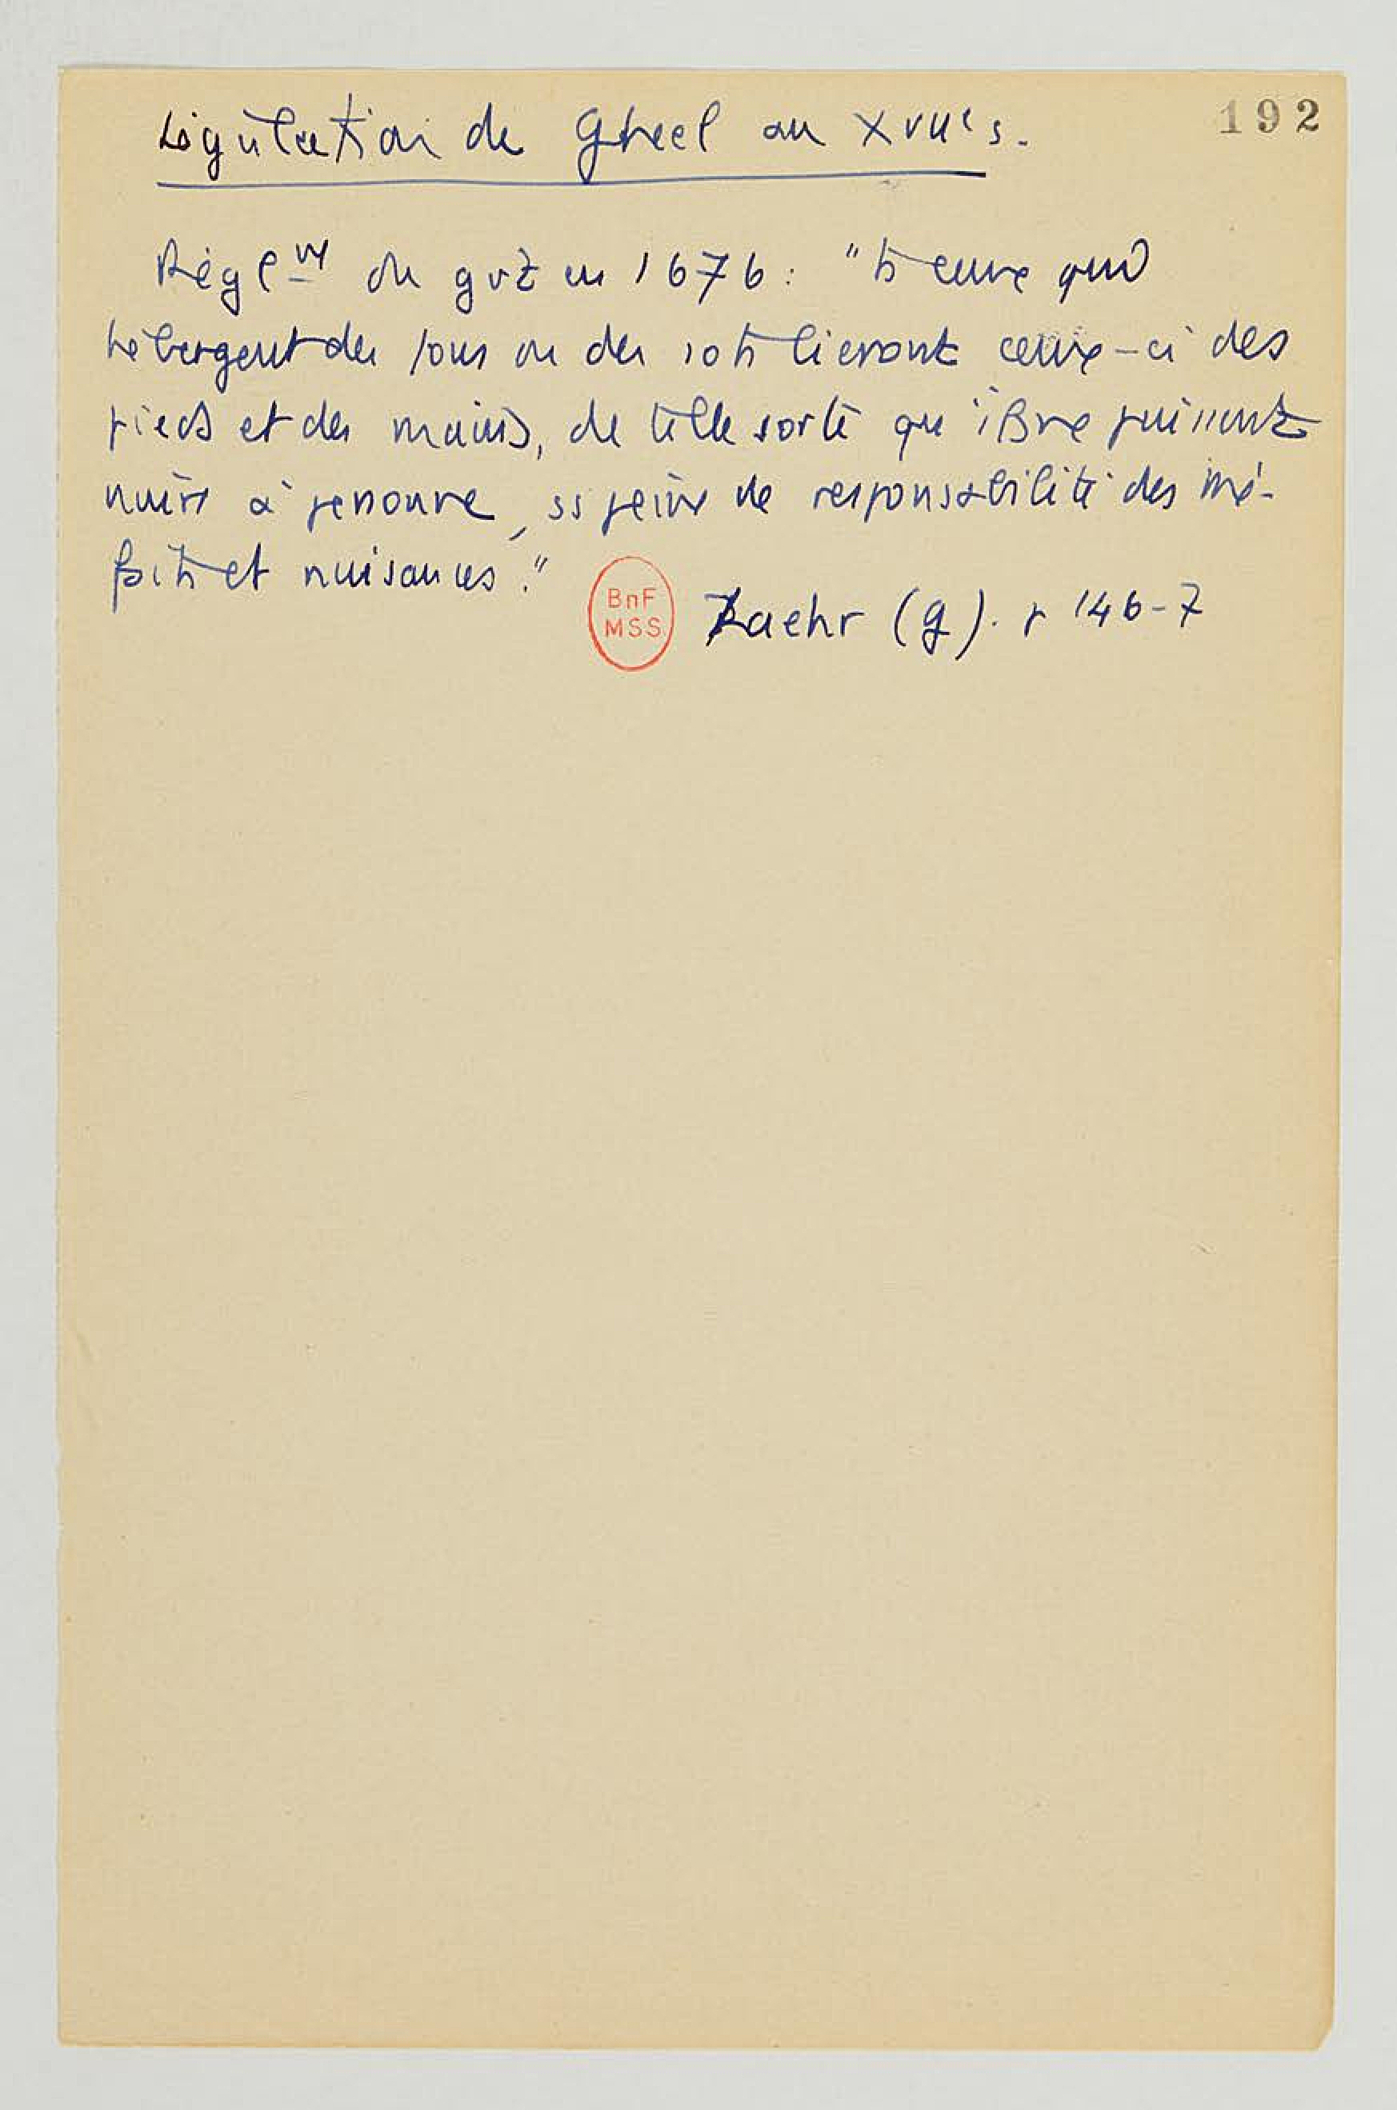 192
Législation de Gheel au XVIIe s.
Règlmt du gvt en 1676 : "ts ceux qui
hébergent des fous ou des sots lieront ceux-ci des
pieds et des mains, de telle sorte qu'ils ne puissent
nuire à personne, ss peine de responsabilité des mé-
faits et nuisances."
BnF
MSS
(G). p 146-7